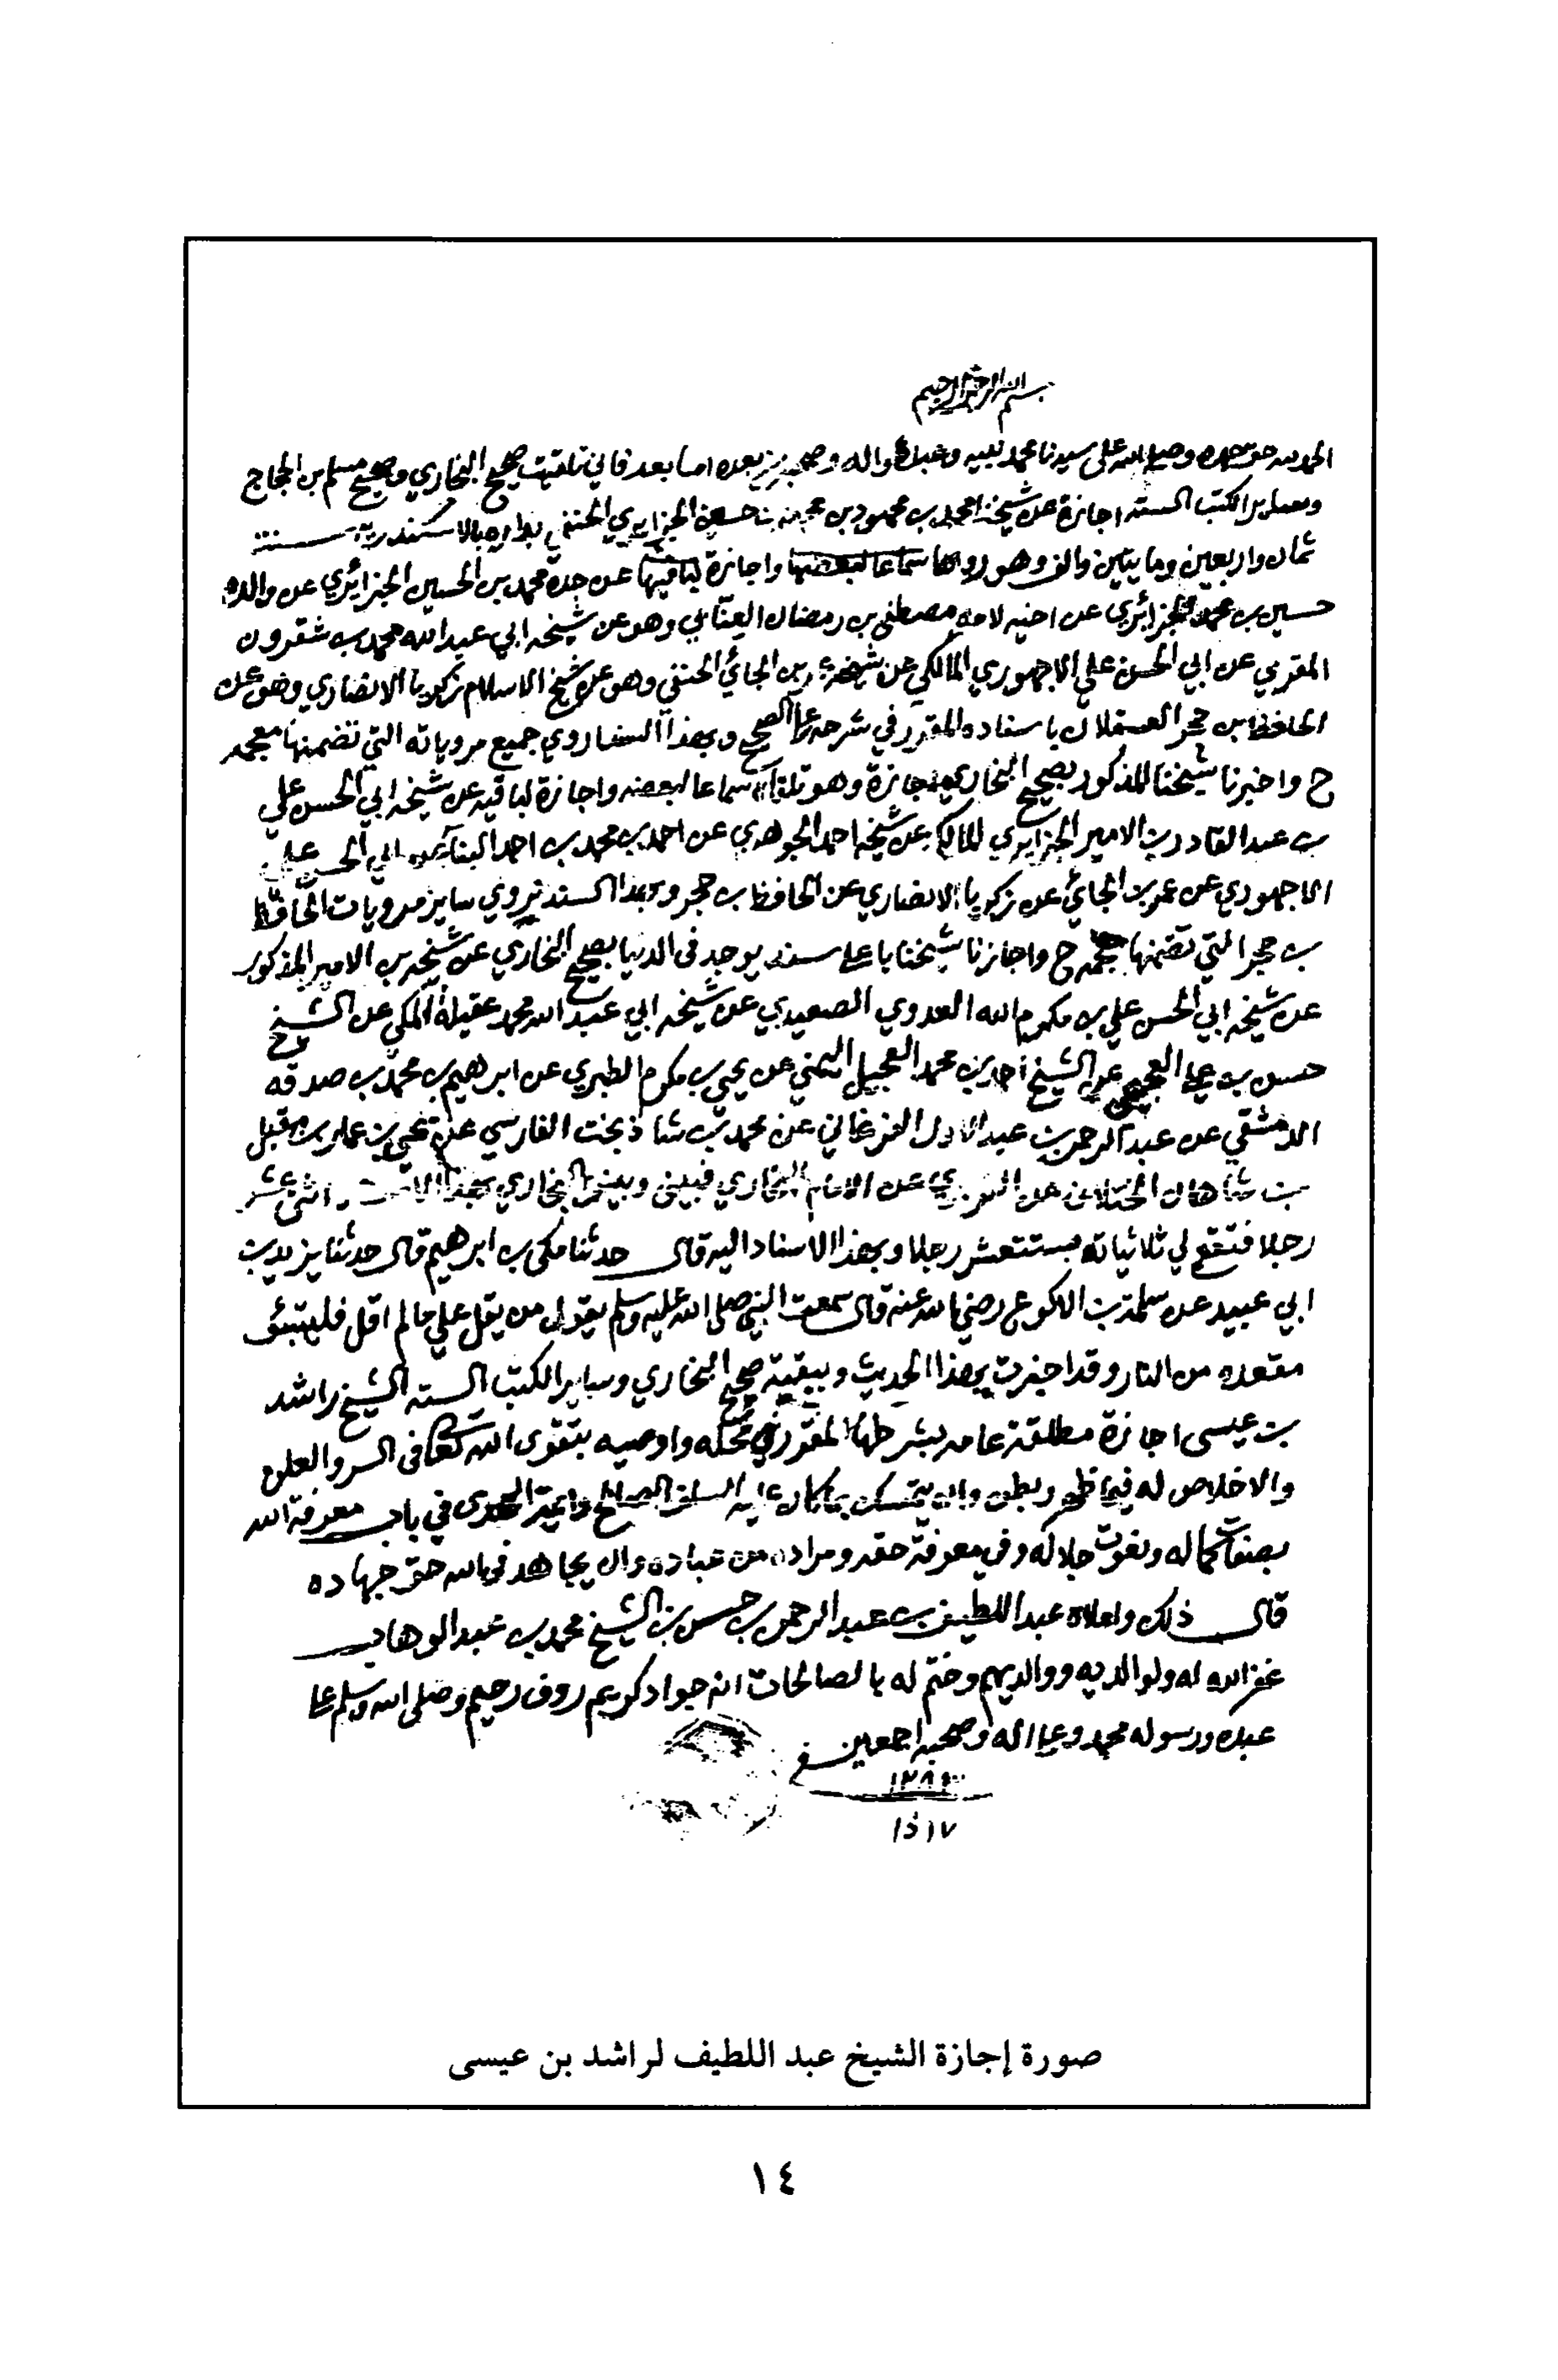 بسم الله الرحمن الرحيم
الحمد لله حق حمده وصلى الله على سيدنا محمد نبيه وعبده واله وصحبه من بعده اما بعد فاني تلقيت صحيح البخاري وصحيح مسلم بن الحجاج
وسائر الكتب السته اجازة عن شيخنا محمد بن محمود بن محمد بن حسين الجزايري الحنفي بداره بالاسكندرية سنة
ثمان واربعين ومايتين والف وهو رواها سماعا لبعضها واجازة لباقيها عن جده محمد بن الحسين الجزائري عن والده
حسين بن محمد الجزائري عن اخيه لامه مصطفى بن رمضان العنابي وهو عن شيخه ابي عبد الله محمد بن شقرون
المقري عن ابي الحسن علي الاجهوري المالكي عن شيخه عمر بن الجائي الحنفي وهو عن شيخ الاسلام زكريا الانصاري وهو عن
الحافظ بن حجر العسقلان باسناده المقرر في شرحه على الصحيح وبهذا السند اروي جميع مروياته التي تضمنها معجمه
ح واخبرنا شيخنا المذكور بصحيح البخاري اجازة وهو تلقاه سماعا لبعضه واجازة لباقيه عن شيخه ابي الحسن علي
بن عبد القادر بن الامير الجزايري المالكي عن شيخه احمد الجوهري عن احمد بن محمد بن احمد البنا عن ابي الحسن علي
الاجهوري عن عمر بن الجائي عن زكريا الانصاري عن الحافظ بن حجر وبهذا السند نروي ساير مرويات الحافظ
بن حجر التي تضمنها معجمه ح واجازنا شيخنا باعلى سند يوجد في الدنيا بصحيح البخاري عن شيخه بن الامير المذكور
عن شيخه ابي الحسن علي بن مكرم الله العدوي الصعيدي عن شيخه ابي عبد الله محمد عقيلة المكي عن الشيخ
حسن بن علي العجيمي عن الشيخ احمد بن محمد العجيل اليمني عن يحيى بن مكرم الطبري عن ابرهيم بن محمد بن صدقه
الدمشقي عن عبد الرحمن بن عبد الاول الفرغاني عن محمد بن شاذ بخت الفارسي عن يحيى بن عمار بن مقبل
بن شاهان الختلاني عن الفربري عن الامام البخاري فبيني وبين البخاري بهذا الاسناد اثنى عشر
رجلا فتقع لي ثلاثياته بستة عشر رجلا وبهذا الاسناد اليه قال حدثنا مكي بن ابرهيم قال حدثنا يزيد بن
ابي عبيد عن سلمة بن الاكوع رضي الله عنه قال سمعت النبي صلى الله عليه وسلم يقول من يقل علي ما لم اقل فليتبوء
مقعده من النار وقد اجزت بهذا الحديث وببقية صحيح البخاري وساير الكتب السته الشيخ راشد
بن عيسى اجازة مطلقة عامه بشرطها المقرر في محله واوصيه بتقوى الله تعالى في السر والعلن
والاخلاص له فيما ظهر وبطن وان يتمسك بما كان عليه السلف الصالح وائمة الهدى في باب معرفة الله
بصفات كماله ونعوت جلاله وفي معرفة حقه ومراده من عباده وان يجاهد في الله حق جهاده
قال ذلك واملاه عبد اللطيف بن عبد الرحمن بن حسن بن الشيخ محمد بن عبد الوهاب
غفر الله له ولوالديه ووالديهم وختم له بالصالحات انه جواد كريم روف رحيم وصلى الله وسلم على
عبده ورسوله محمد وعلى اله وصحبه اجمعين
١٧ ذا
صورة إجازة الشيخ عبد اللطيف لراشد بن عيسى
١٤